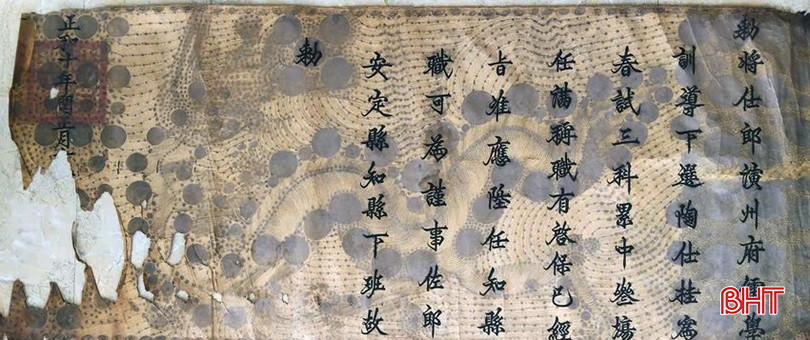 勅將仕郎演州府儒學
訓導下選陶仕挂為
春試三科累中叄塲
任滿稱職有啓保已經
旨准應陞任知縣
職可為謹事佐郎
安定縣知縣下班故
勅
正和十年閏三月
BHT